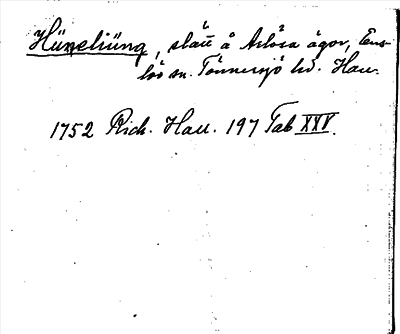 Hüneliüng, slätt å Arlösa ägor, Ens-
löv sn. Tönnersjö hd. Hall.
1752 Rich. Hall. 197 Tab XXV.